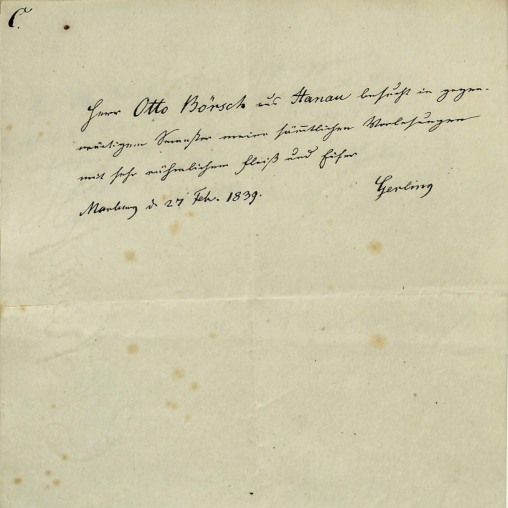 C.
Herr Otto Börsch aus Hanau besucht in gegen-
wärtigem Semester meine sämtlichen Vorlesungen
mit sehr rühmlichem Fleiß und Eifer
Marburg d. 27 Feb. 1839.
Gerling